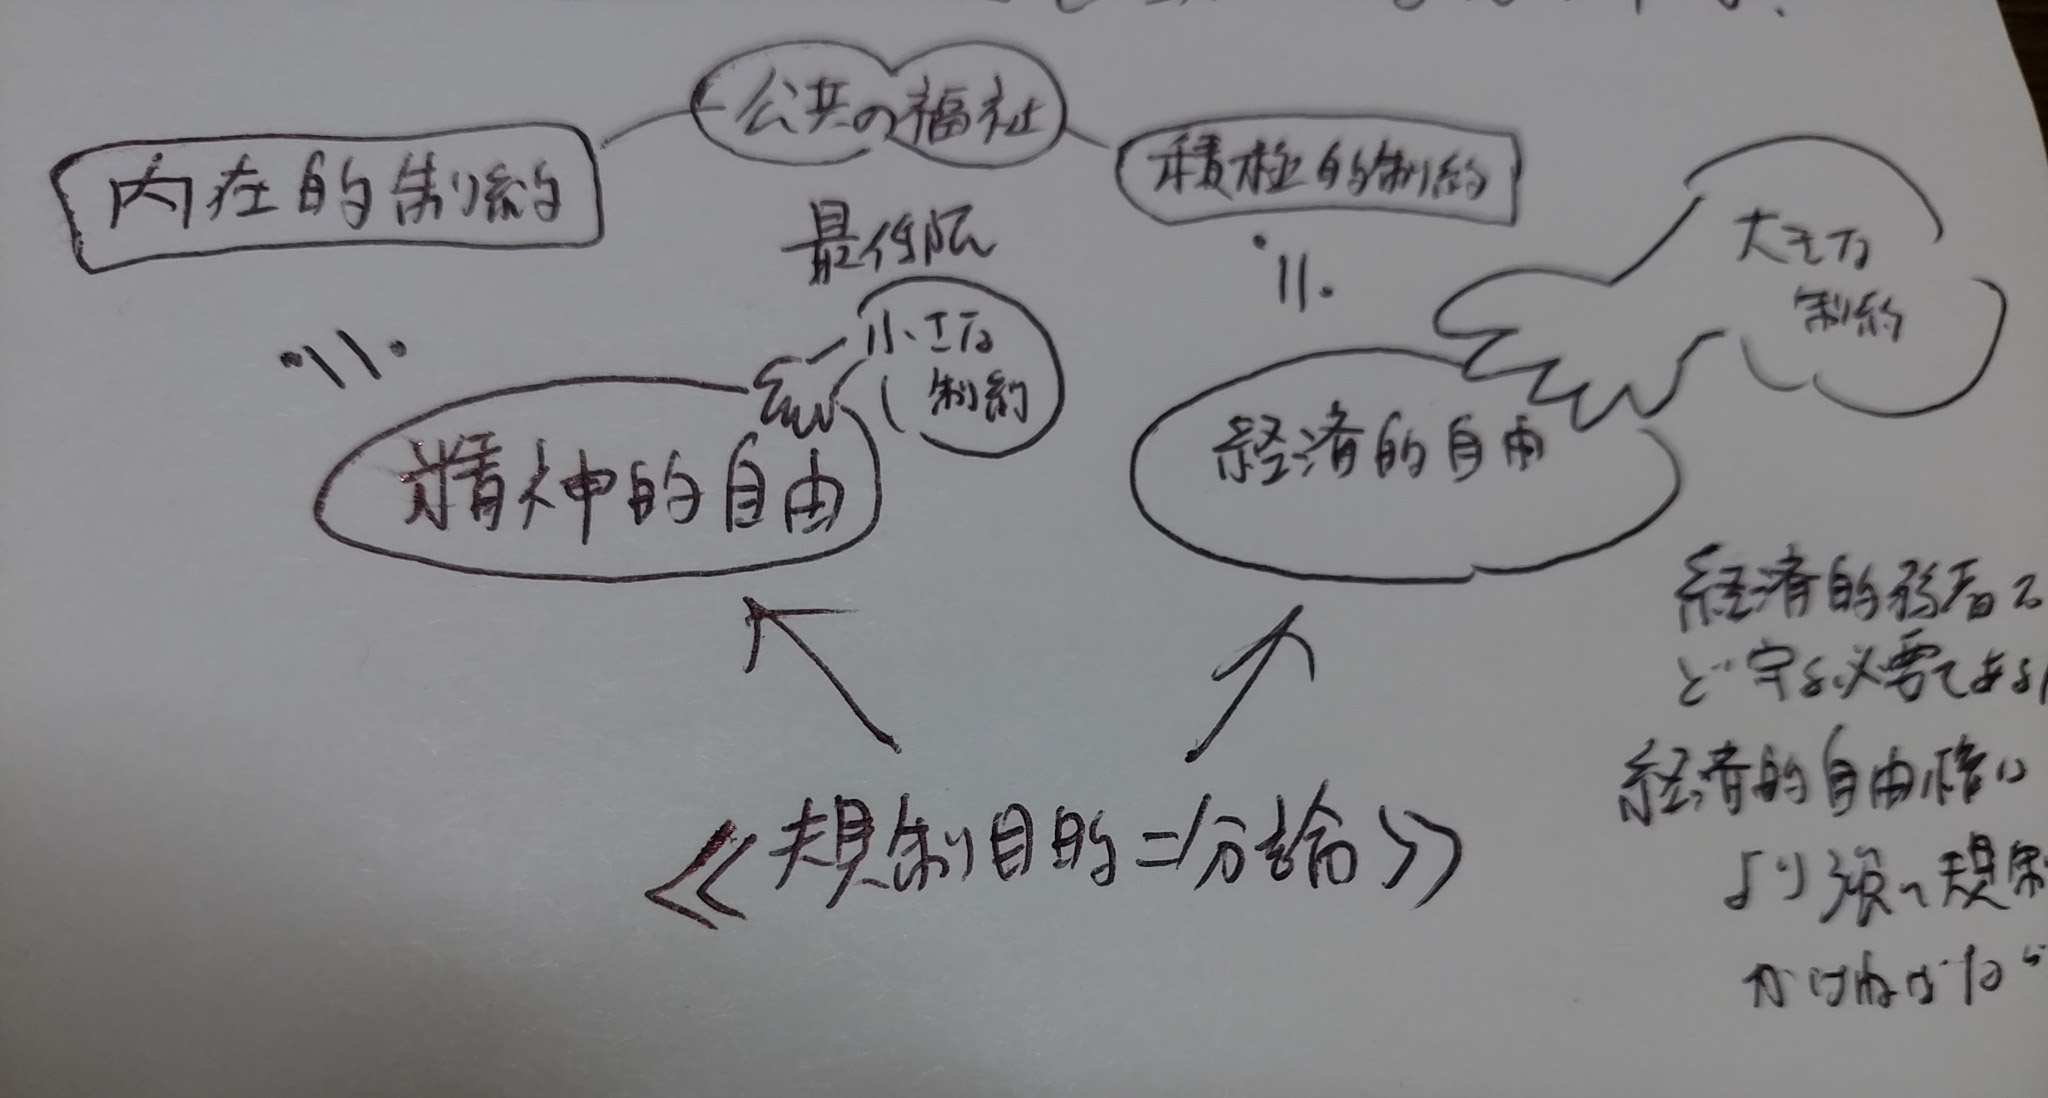 公共の福祉
内在的制約
積極的制約
最低限
小さな
制約
大きな
制約
精神的自由
経済的自由
経済的弱者な
ど守る必要である
経済的自由権は
より強い規制
かけねばなら
《規制目的二分論》